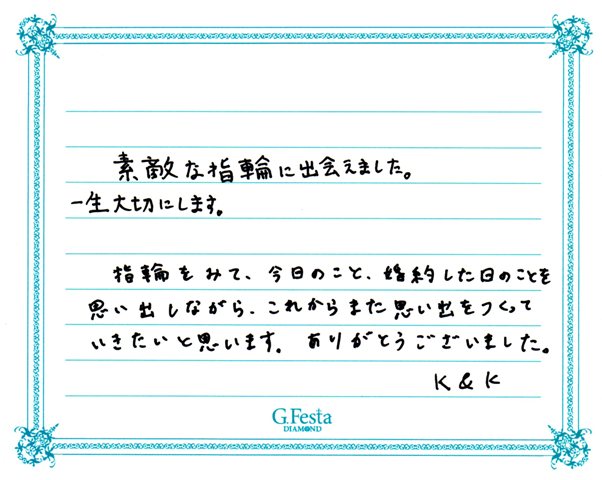 素敵な指輪に出会えました。
一生大切にします。
指輪をみて、今日のこと、婚約した日のことを
思い出しながら、これからまた思い出をつくって
いきたいと思います。ありがとうございました。
K & K
G.Festa
DIAMOND